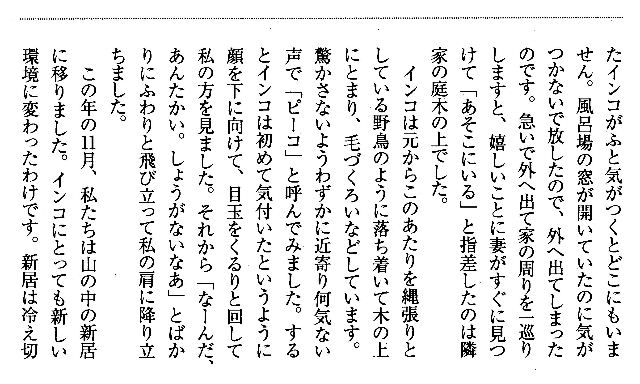 たインコがふと気がつくとどこにもいま
せん。風呂場の窓が開いていたのに気が
つかないで放したので、外へ出てしまった
のです。急いで外へ出て家の周りを一巡り
しますと、嬉しいことに妻がすぐに見つ
けて「あそこにいる」と指差したのは隣
家の庭木の上でした。
インコは元からこのあたりを縄張りと
している野鳥のように落ち着いて木の上
にとまり、毛づくろいなどしています。
驚かさないようわずかに近寄り何気ない
声で「ピーコ」と呼んでみました。する
とインコは初めて気付いたというように
顔を下に向けて、目玉をくるりと回して
私の方を見ました。それから「なーんだ、
あんたかい。しょうがないなあ」とばか
りにふわりと飛び立って私の肩に降り立
ちました。
この年の11月、私たちは山の中の新居
に移りました。インコにとっても新しい
環境に変わったわけです。新居は冷え切